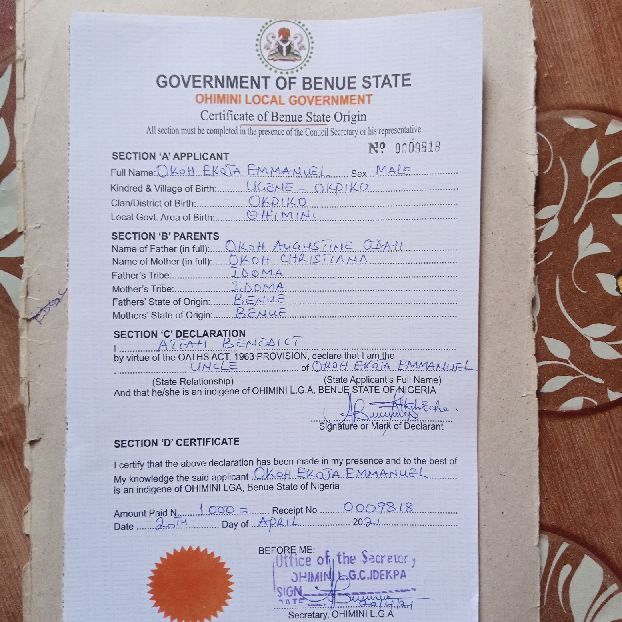 GOVERNMENT OF BENUE STATE
OHIMINI LOCAL GOVERNMENT
Certificate of Benue State Origin
All section must be completed in the presence of the Concil Secretary or his representative
Nº 0009818
SECTION 'A' APPLICANT
Full Name: OKOH EKOJA EMMANUEL Sex MALE
Kindred & Village of Birth: UGENE - OKPIKO
Clan/District of Birth: OKPIKO
Local Govt. Area of Birth: OHIMINI
SECTION 'B' PARENTS
Name of Father (in full): OKOH AUGUSTINE ODAH
Name of Mother (in full): OKOH CHRISTIANA
Father's Tribe: IDOMA
Mother's Tribe: IDOMA
Fathers' State of Origin: BENUE
Mothers' State of Origin: BENUE
SECTION 'C' DECLARATION
I ATTAH BENEDICT
by virtue of the OATHS ACT, 1963 PROVISION, declare that I am the
UNCLE of OKOH EKOJA EMMANUEL
(State Relationship) (State Applicant's Full Name)
And that he/she is an indigene of OHIMINI L.G.A, BENUE STATE OF NIGERIA
Signature or Mark of Declarant
SECTION 'D' CERTIFICATE
I certify that the above declaration has been made in my presence and to the best of
My knowledge the said applicant OKOH EKOJA EMMANUEL
is an indigene of OHIMINI LGA, Benue State of Nigeria
Amount Paid N 1000 = Receipt No 0009818
Date 20th Day of APRIL 2021
BEFORE ME:
Office of the Secretary
OHIMINI L.G.C. IDEKPA
SIGN
DATE
Secretary, OHIMINI L.G.A